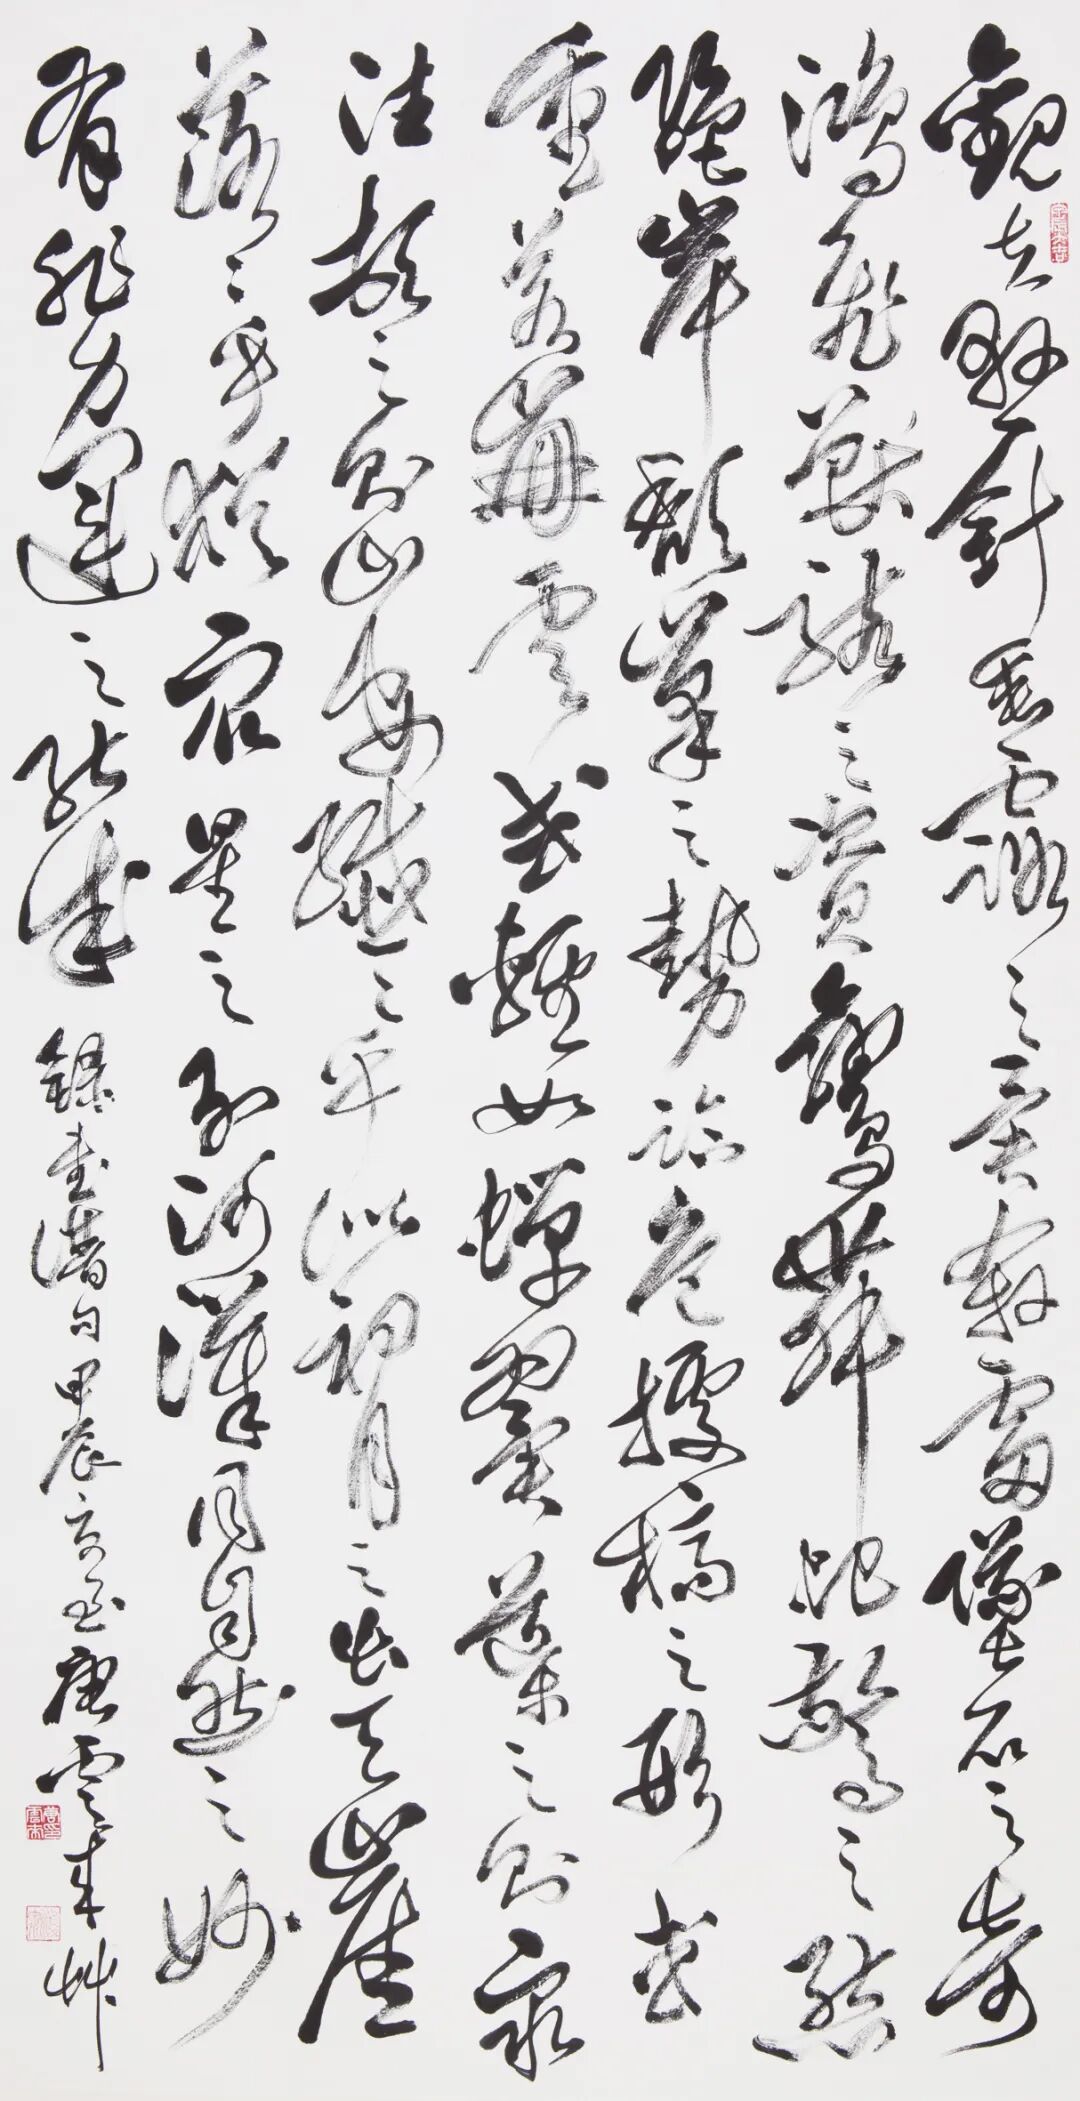 觀夫懸針垂露之異奔雷墜石之奇
鴻飛獸駭之資鸞舞蛇驚之態
絕岸頹峯之勢臨危據槁之形或
重若崩雲或輕如蟬翼導之則泉
注頓之則山安纖〻乎似初月之出天崖
落〻乎猶眾星之列河漢同自然之妙
有非力運之能成 錄書譜句甲辰夏至唐雲來艸